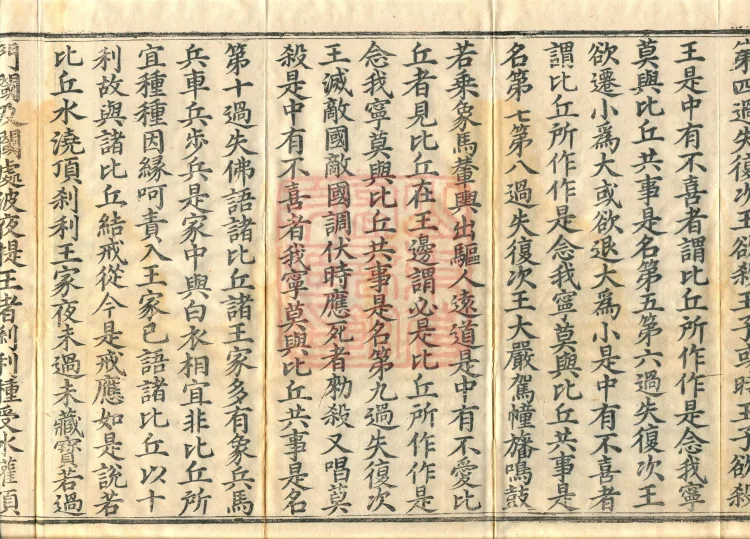 第四過失復次王欲殺王子或時王子欲殺
王是中有不喜者謂比丘所作作是念我寧
莫與比丘共事是名第五第六過失復次王
欲遷小爲大或欲退大爲小是中有不喜者
謂比丘所作作是念我寧莫與比丘共事是
名第七第八過失復次王大嚴駕幢旛鳴鼓
若乘象馬輦輿出驅人遠道是中有不愛比
丘者見比丘在王邊謂必是比丘所作作是
念我寧莫與比丘共事是名第九過失復次
王滅敵國敵國調伏時應死者勑殺又唱莫
殺是中有不喜者我寧莫與比丘共事是名
第十過失佛語諸比丘諸王家多有象兵馬
兵車兵步兵是家中與白衣相宜非比丘所
宜種種因緣呵責入王家已語諸比丘以十
利故與諸比丘結戒從今是戒應如是說若
比丘水澆頂刹利王家夜未過未藏寶若過
門閫及閫處波夜提王者刹利種受水灌頂